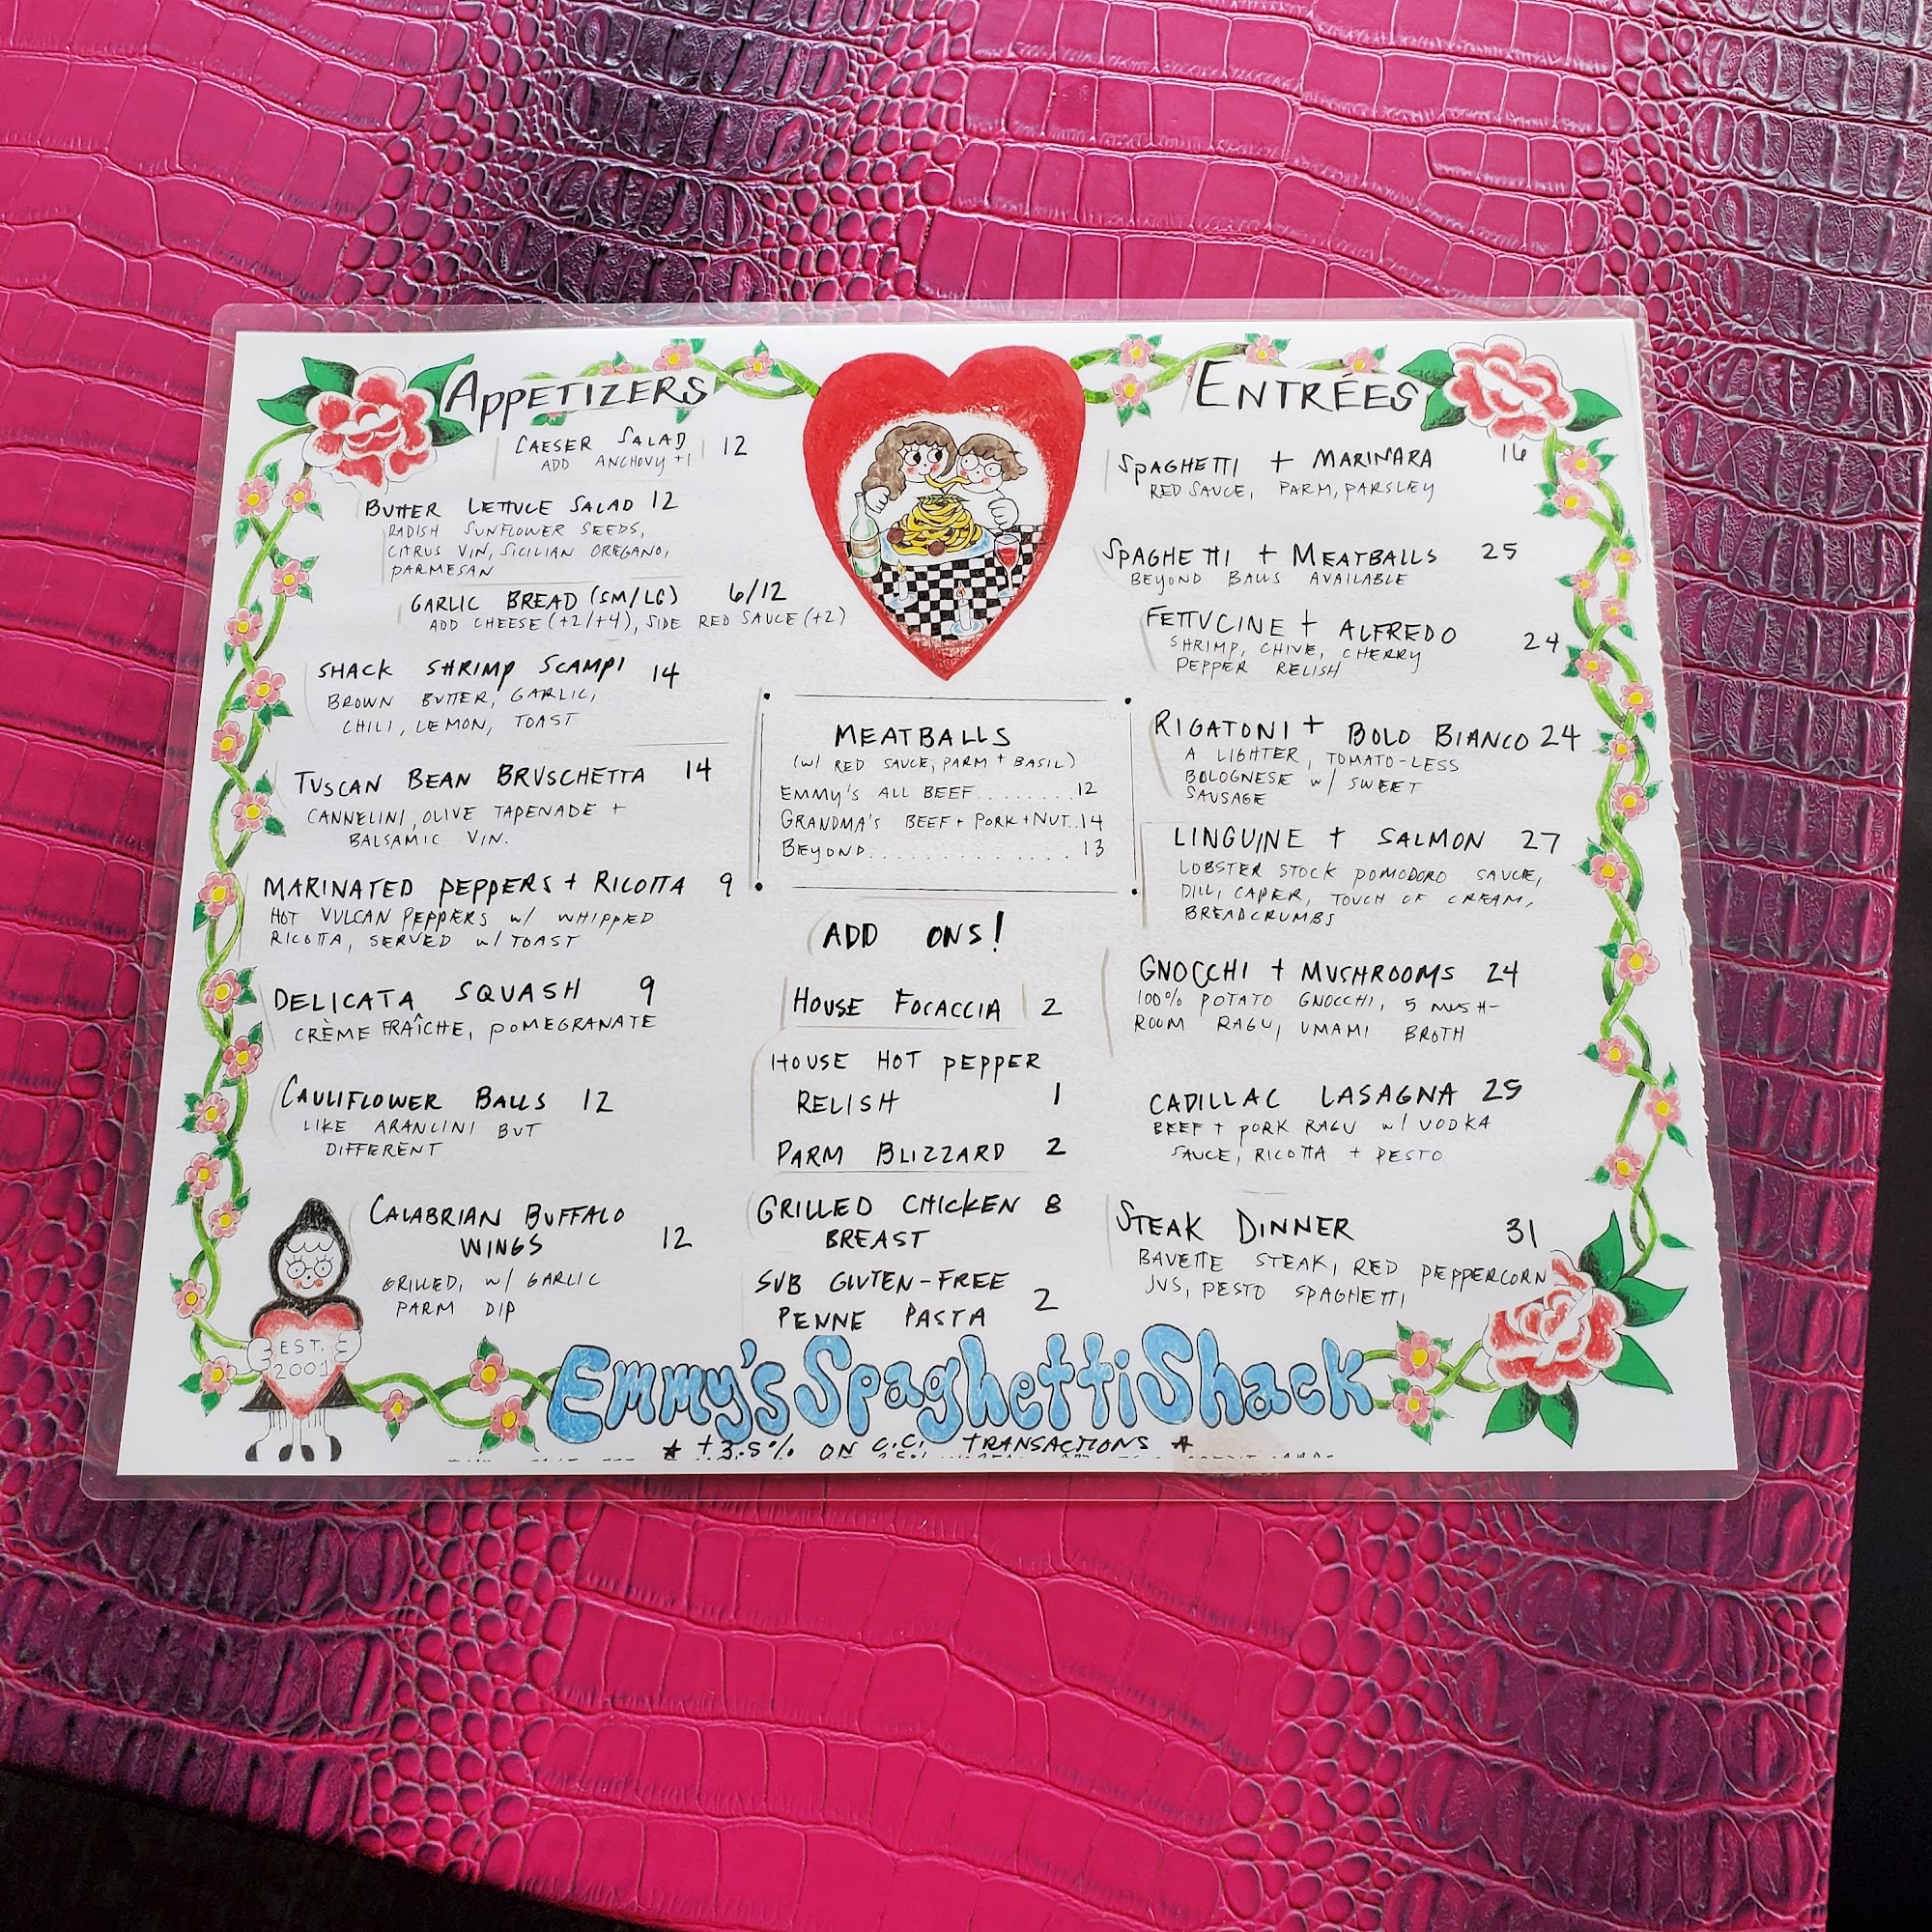 APPETIZERS
CAESER SALAD 12
ADD ANCHOVY +1
BUTTER LETTUCE SALAD 12
RADISH SUNFLOWER SEEDS,
CITRUS VIN, SICILIAN OREGANO,
PARMESAN
GARLIC BREAD (SM/LG) 6/12
ADD CHEESE (+2/+4), SIDE RED SAUCE (+2)
SHACK SHRIMP SCAMPI 14
BROWN BUTTER, GARLIC,
CHILI, LEMON, TOAST
TUSCAN BEAN BRUSCHETTA 14
CANNELINI, OLIVE TAPENADE +
BALSAMIC VIN.
MARINATED PEPPERS + RICOTTA 9
HOT VULCAN PEPPERS w/ WHIPPED
RICOTTA, SERVED w/ TOAST
DELICATA SQUASH 9
CRÈME FRAÎCHE, POMEGRANATE
CAULIFLOWER BALLS 12
LIKE ARANCINI BUT
DIFFERENT
CALABRIAN BUFFALO
WINGS 12
GRILLED, w/ GARLIC
PARM DIP
EST.
2001
MEATBALLS
(w/ RED SAUCE, PARM + BASIL)
EMMY'S ALL BEEF........12
GRANDMA'S BEEF + PORK + NUT..14
BEYOND..............13
ADD ONS!
HOUSE FOCACCIA 2
HOUSE HOT PEPPER
RELISH 1
PARM BLIZZARD 2
GRILLED CHICKEN 8
BREAST
SUB GLUTEN-FREE
PENNE PASTA 2
ENTRÉES
SPAGHETTI + MARINARA 16
RED SAUCE, PARM, PARSLEY
SPAGHETTI + MEATBALLS 25
BEYOND BALLS AVAILABLE
FETTUCINE + ALFREDO 24
SHRIMP, CHIVE, CHERRY
PEPPER RELISH
RIGATONI + BOLO BIANCO 24
A LIGHTER, TOMATO-LESS
BOLOGNESE w/ SWEET
SAUSAGE
LINGUINE + SALMON 27
LOBSTER STOCK POMODORO SAUCE,
DILL, CAPER, TOUCH OF CREAM,
BREADCRUMBS
GNOCCHI + MUSHROOMS 24
100% POTATO GNOCCHI, 5 MUSH-
ROOM RAGU, UMAMI BROTH
CADILLAC LASAGNA 25
BEEF + PORK RAGU w/ VODKA
SAUCE, RICOTTA + PESTO
STEAK DINNER 31
BAVETTE STEAK, RED PEPPERCORN
JUS, PESTO SPAGHETTI
Emmy's Spaghetti Shack
* +3.5% ON C.C. TRANSACTIONS *